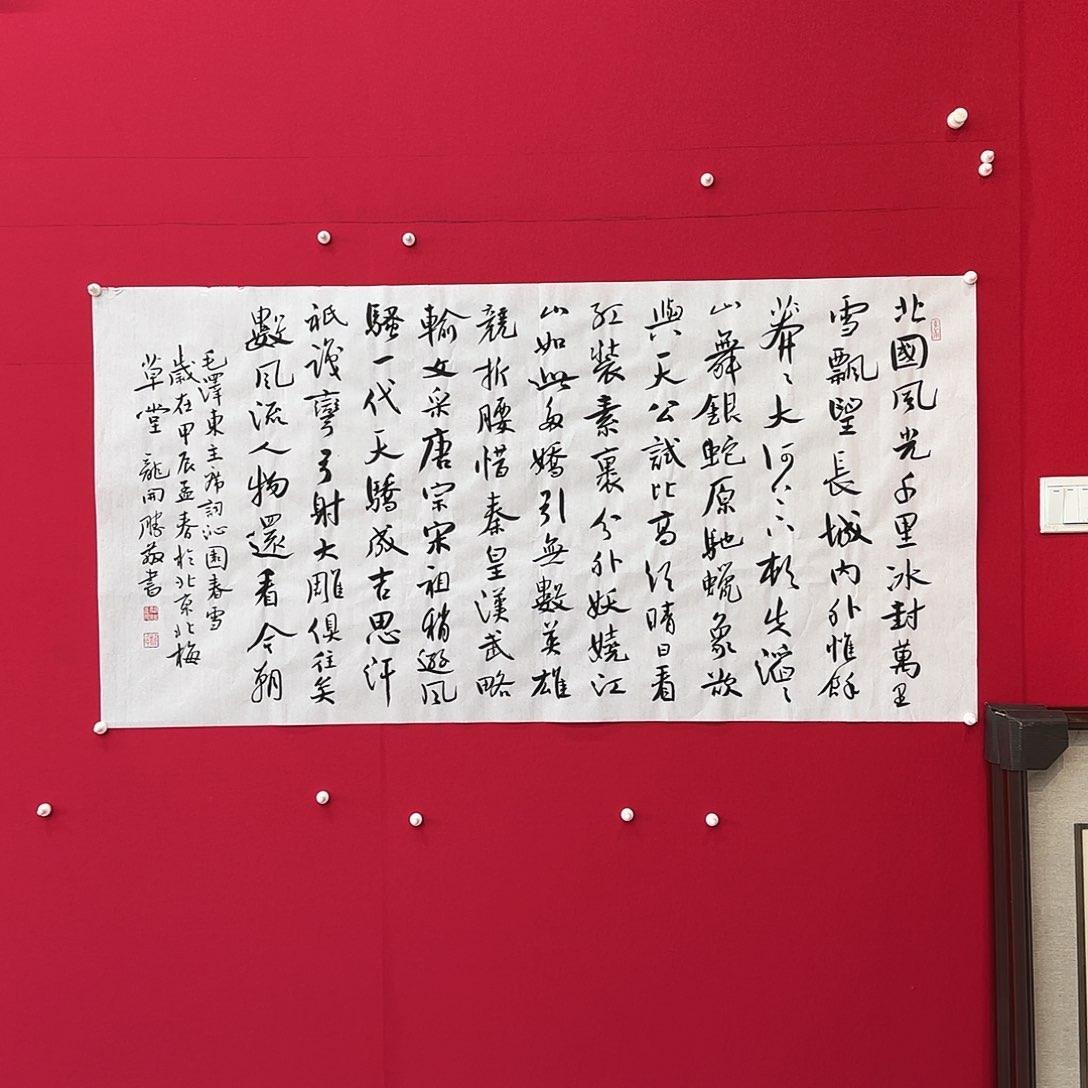 北國風光千里冰封萬里
雪飄望長城內外惟餘
莽〻大河上下頓失滔〻
山舞銀蛇原馳蠟象欲
與天公試比高須晴日看
紅裝素裹分外妖嬈江
山如此多嬌引無數英雄
競折腰惜秦皇漢武略
輸文采唐宗宋祖稍遜風
騷一代天驕成吉思汗
祇識彎弓射大雕俱往矣
數風流人物還看今朝
毛澤東主席詞沁園春雪
歲在甲辰孟春於北京北梅
草堂 龍開勝敬書